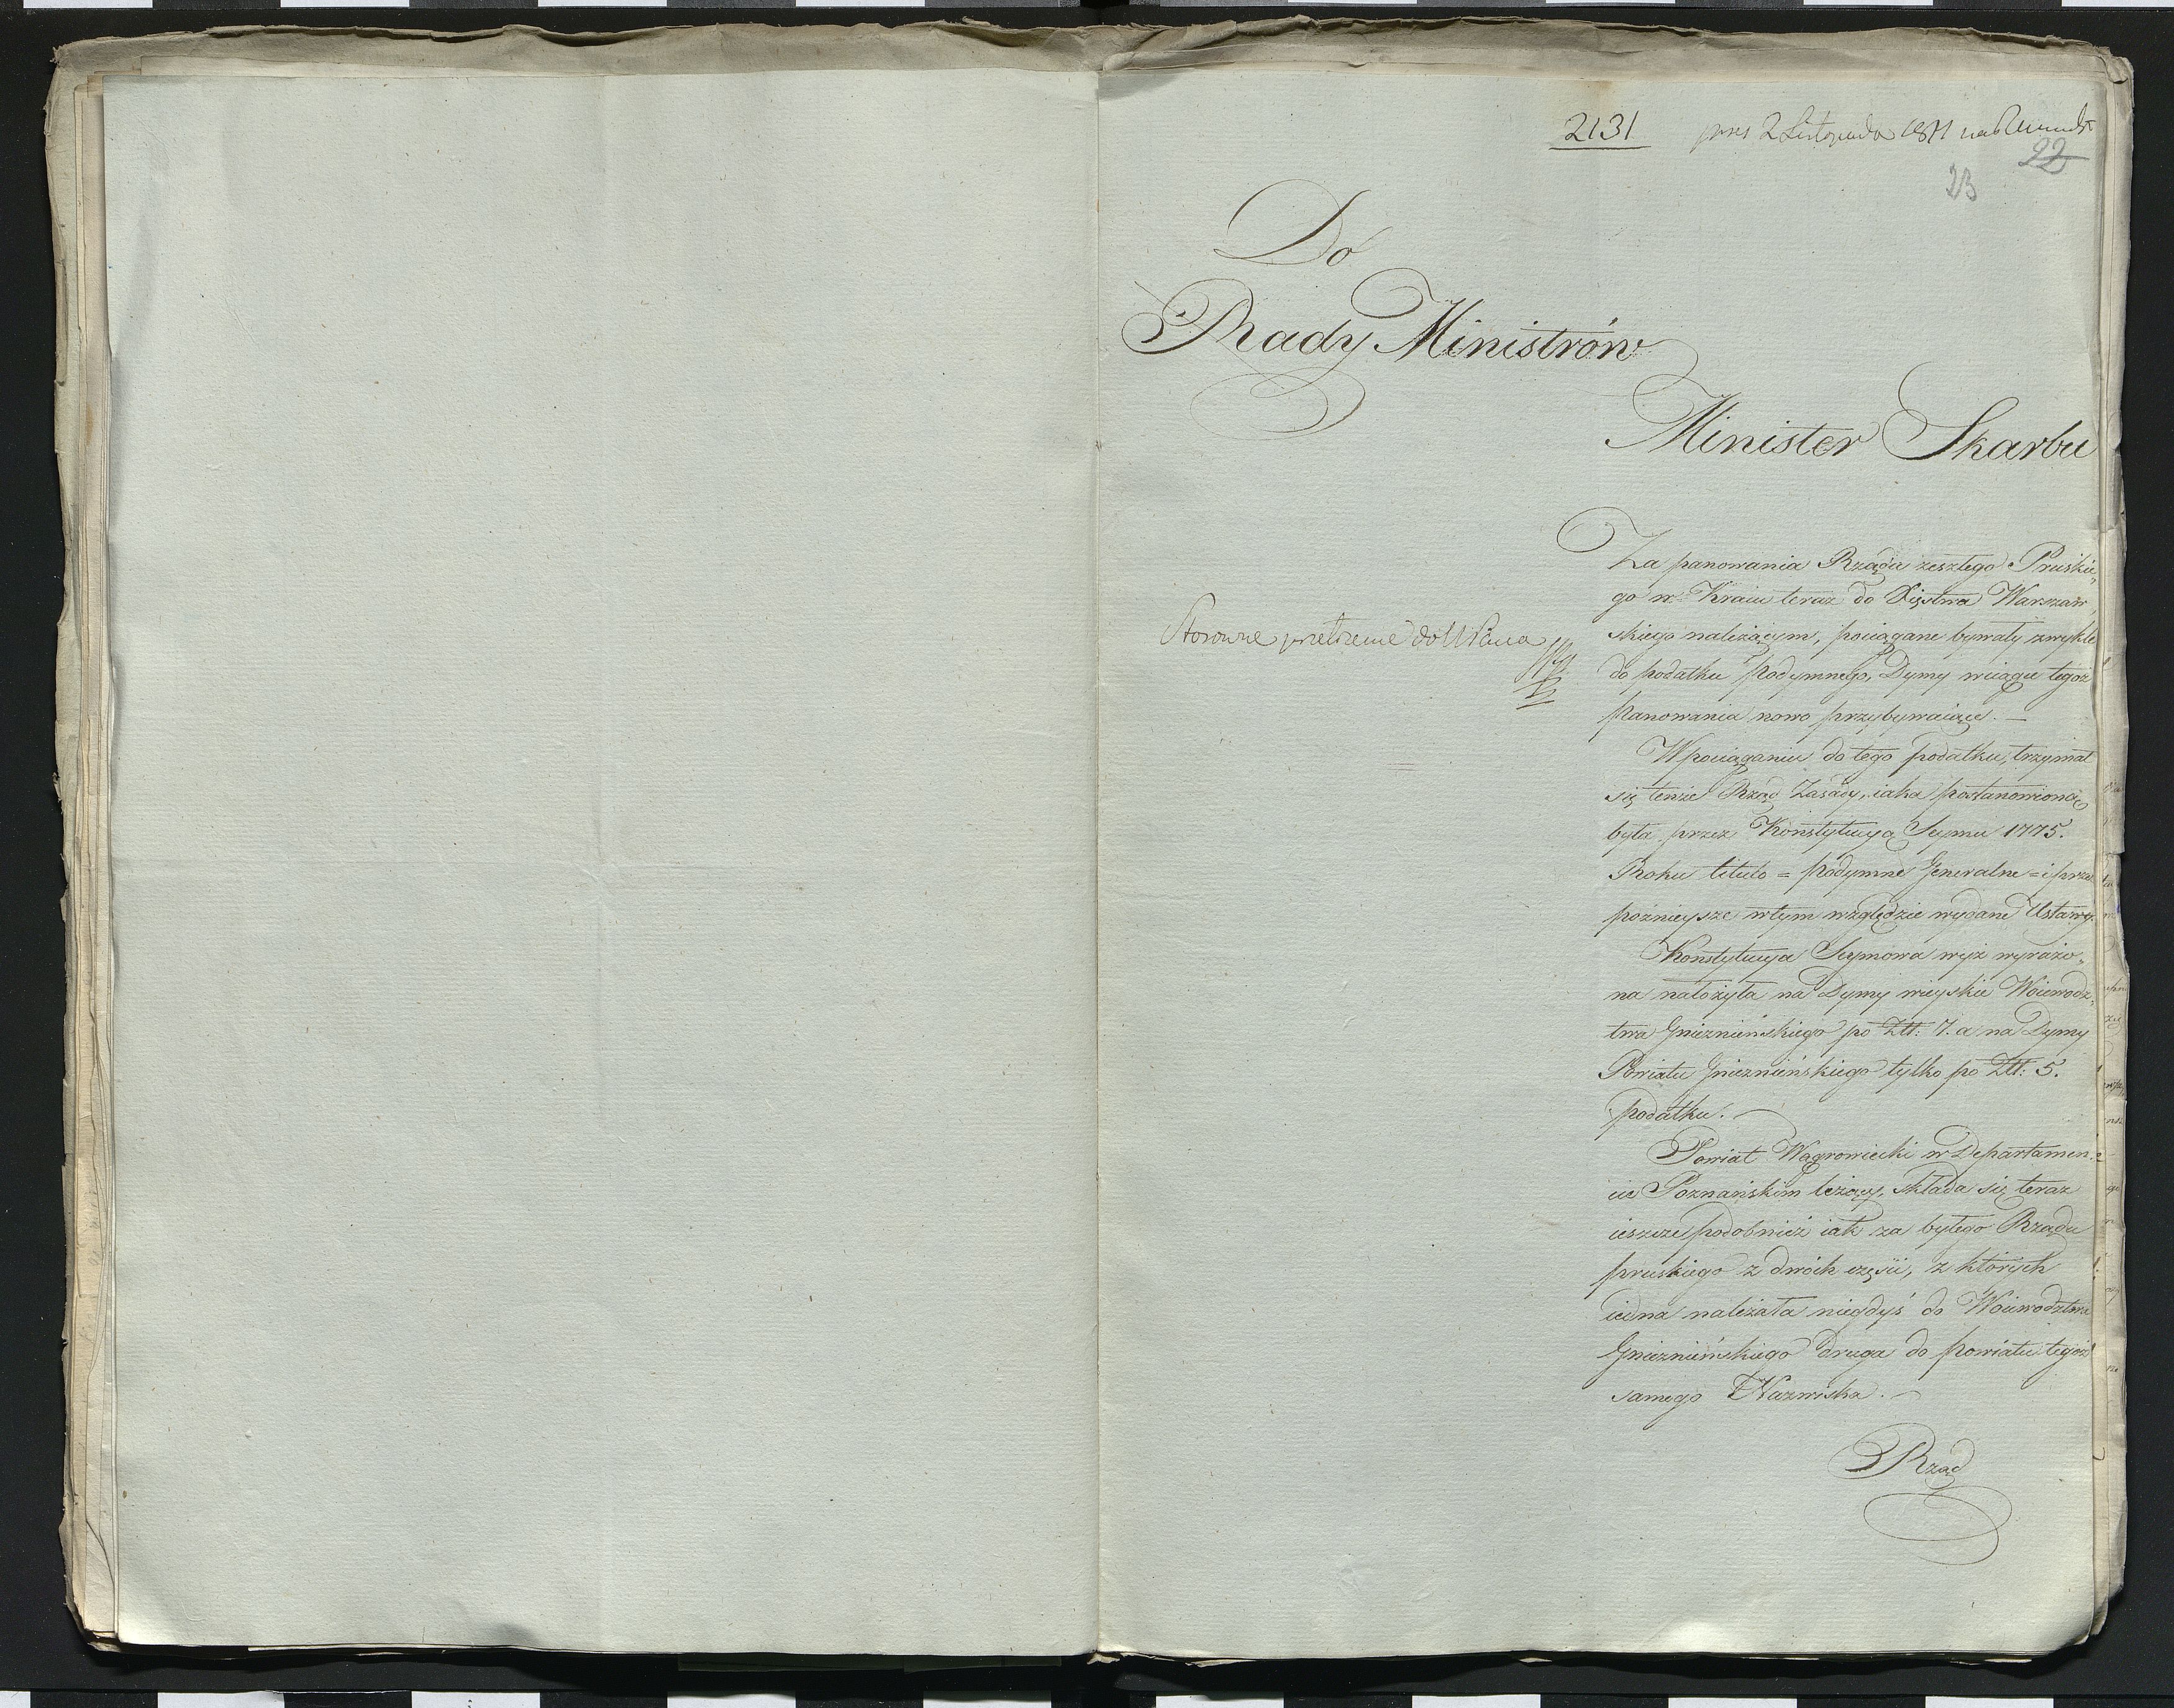 2131 pres 2 Listopada 1811
22
23
Do
Rady Ministrów
Minister Skarbu
Za panowania Rządu zeszłego Pruskie„
go w Kraiu teraz do Xięstwa Warszaw„
skiego należącym, pociągane bywały zwykle
do podatku Podymnego, Dymy wciągu tegoż
panowania nowo przybywaiące. —
Wpociąganiu do tego podatku, trzymał
się tenże Rząd Zasady, iaka postanowioną
była przez Konstytucyą Seymu 1775.
Roku titulo = podymne Generalne = i przez
poźnieysze wtym względzie wydane Ustawy.
Konstytucya Seymowa wyż wyrażo„
na nałożyła na Dymy wieyskie Woiewodz„
twa Gnieznieńskiego po Złł: 7. a na Dymy
Powiatu Gnieznieńskiego tylko po Złł: 5.
podatku. —
Powiat Wągrowiecki w Departamen„
cie Poznańskim leżący, składa się teraz
ieszcze podobnież iak za byłego Rządu
pruskiego z dwóch części, z których
iedna należała niegdyś do Woiewodztwa
Gnieznieńskiego druga do powiatu tegoż
samego Nazwiska. —
Rząd
Stosowne przełożenie do NPana